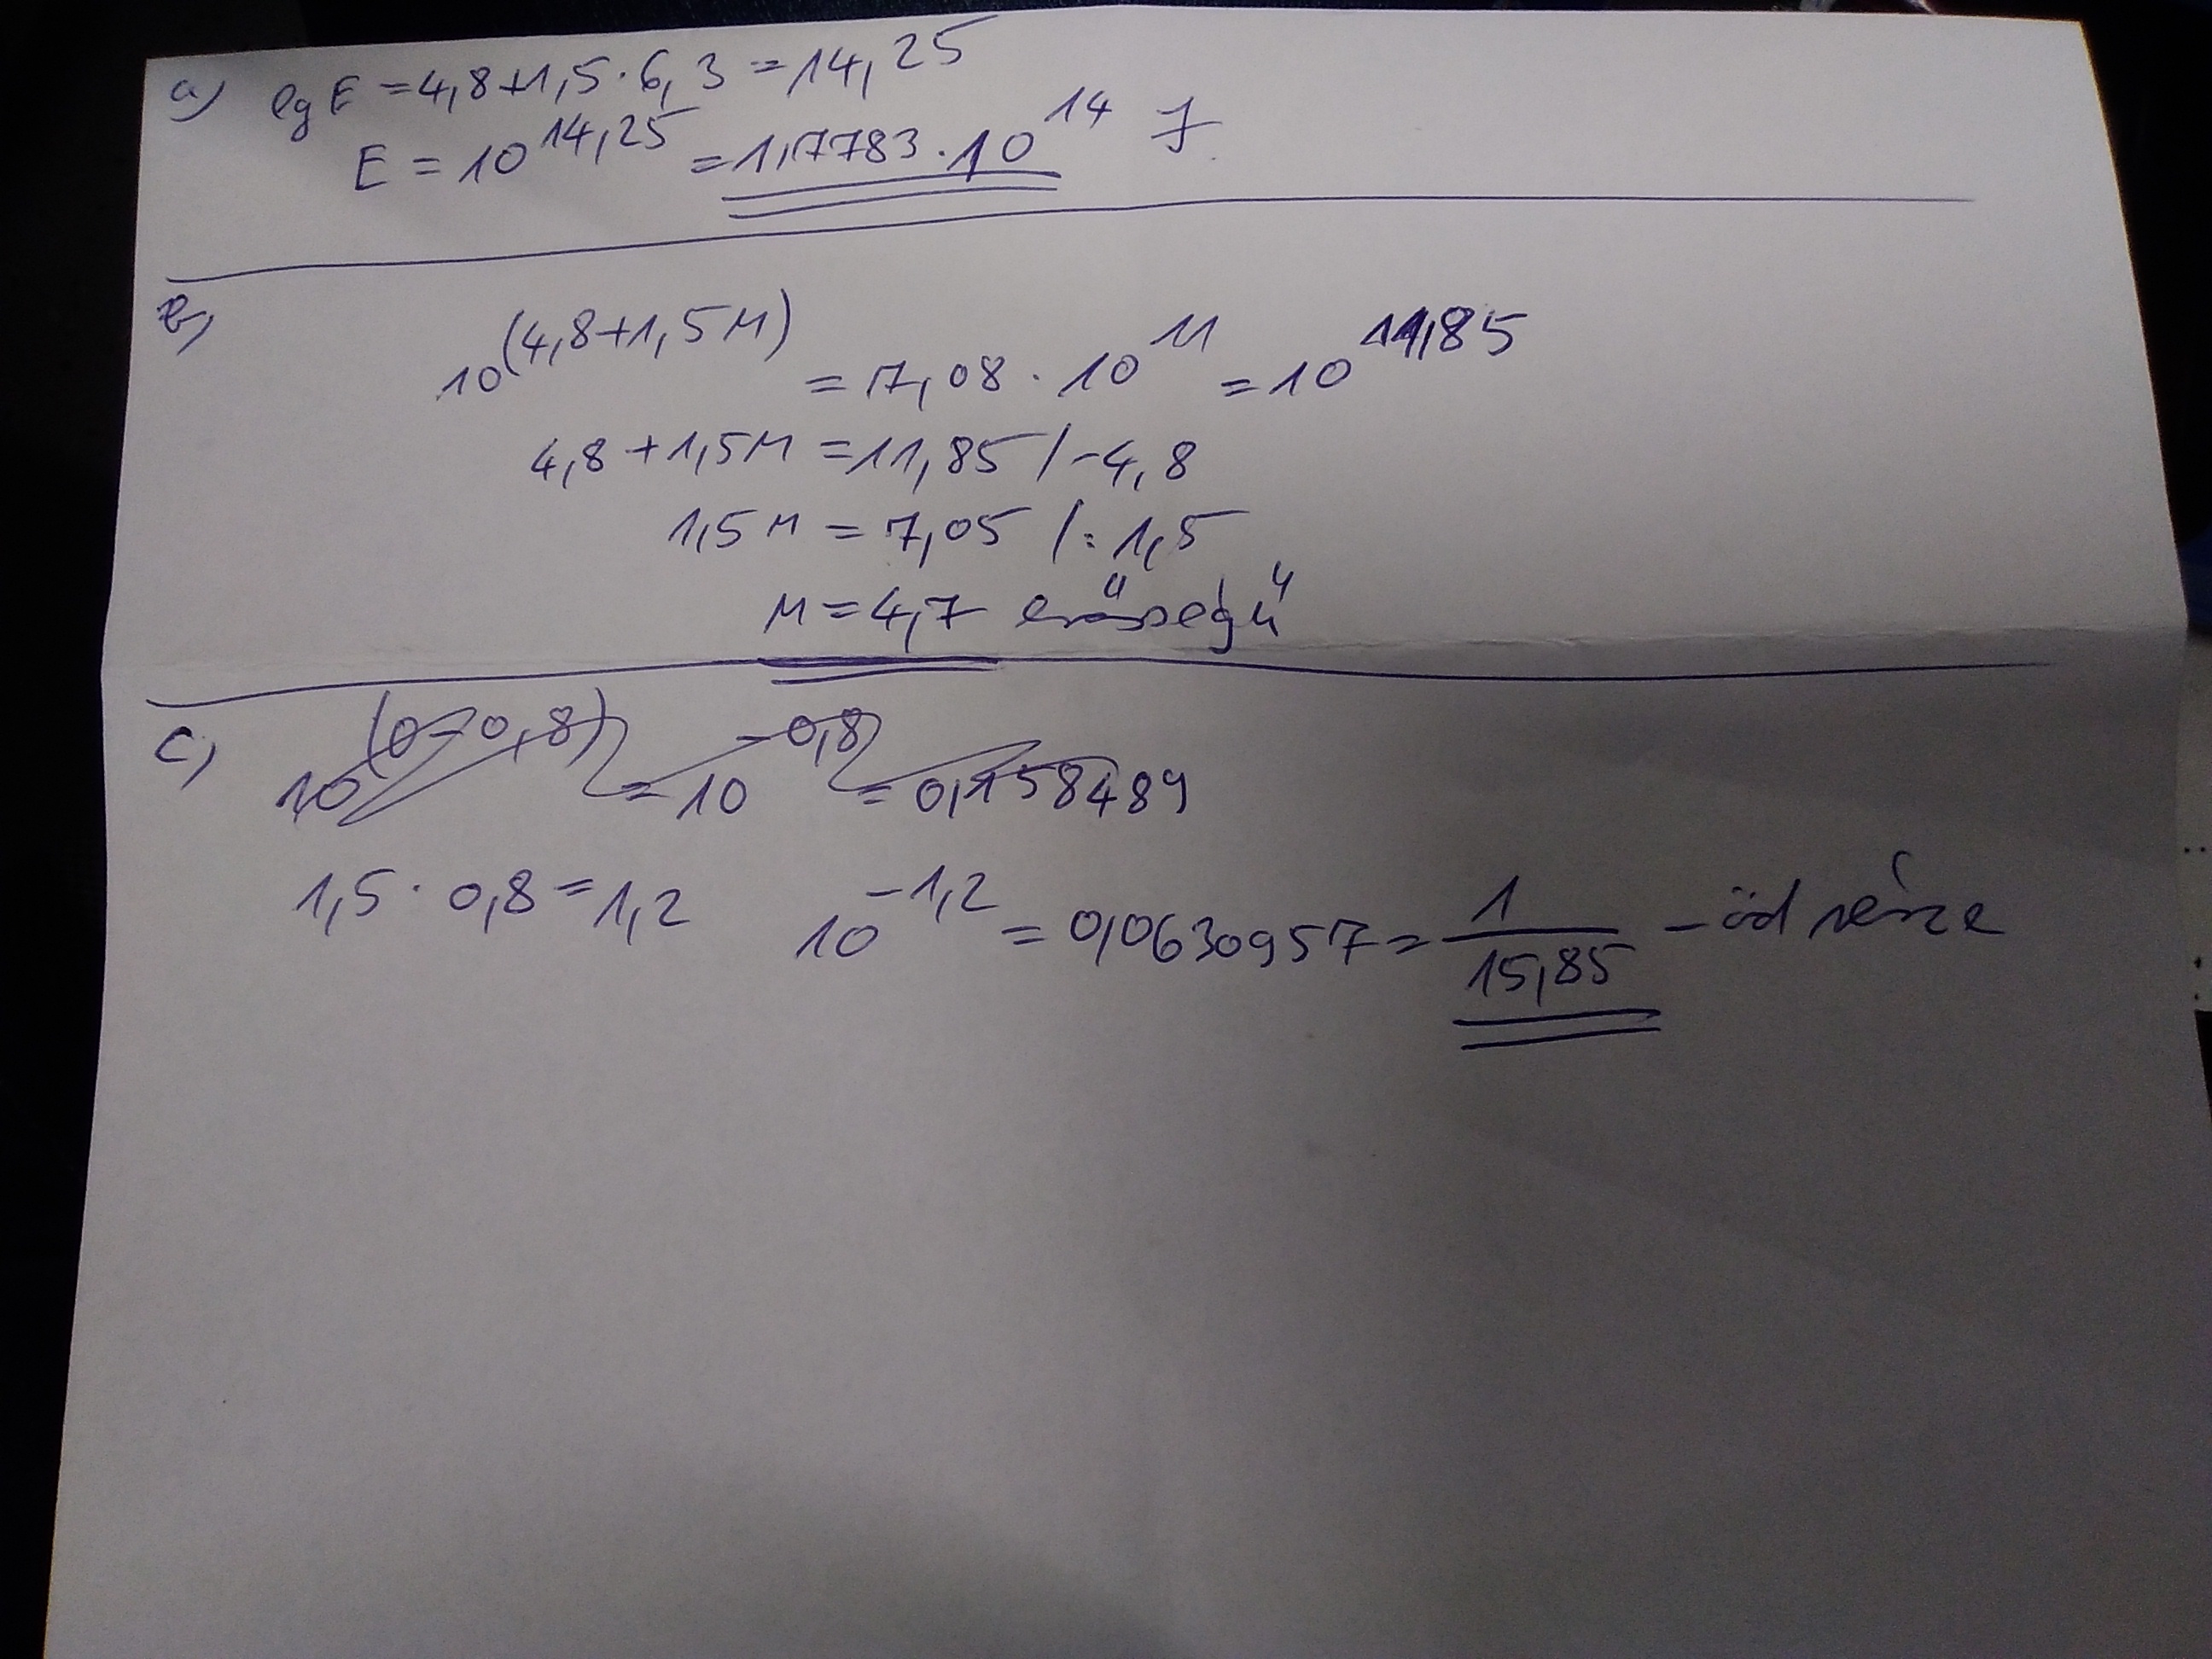 a) lg E = 4,8+1,5·6,3 = 14,25
E = 10^14,25 = 1,7783·10^14 J
b)
10^(4,8+1,5M) = 7,08·10^11 = 10^11,85
4,8+1,5M = 11,85 /-4,8
1,5M = 7,05 /:1,5
M = 4,7 erősségű
c) 10^(0-0,8) = 10^-0,8 = 0,158489
1,5·0,8 = 1,2 10^-1,2 = 0,0630957 = 1/15,85 -öd része